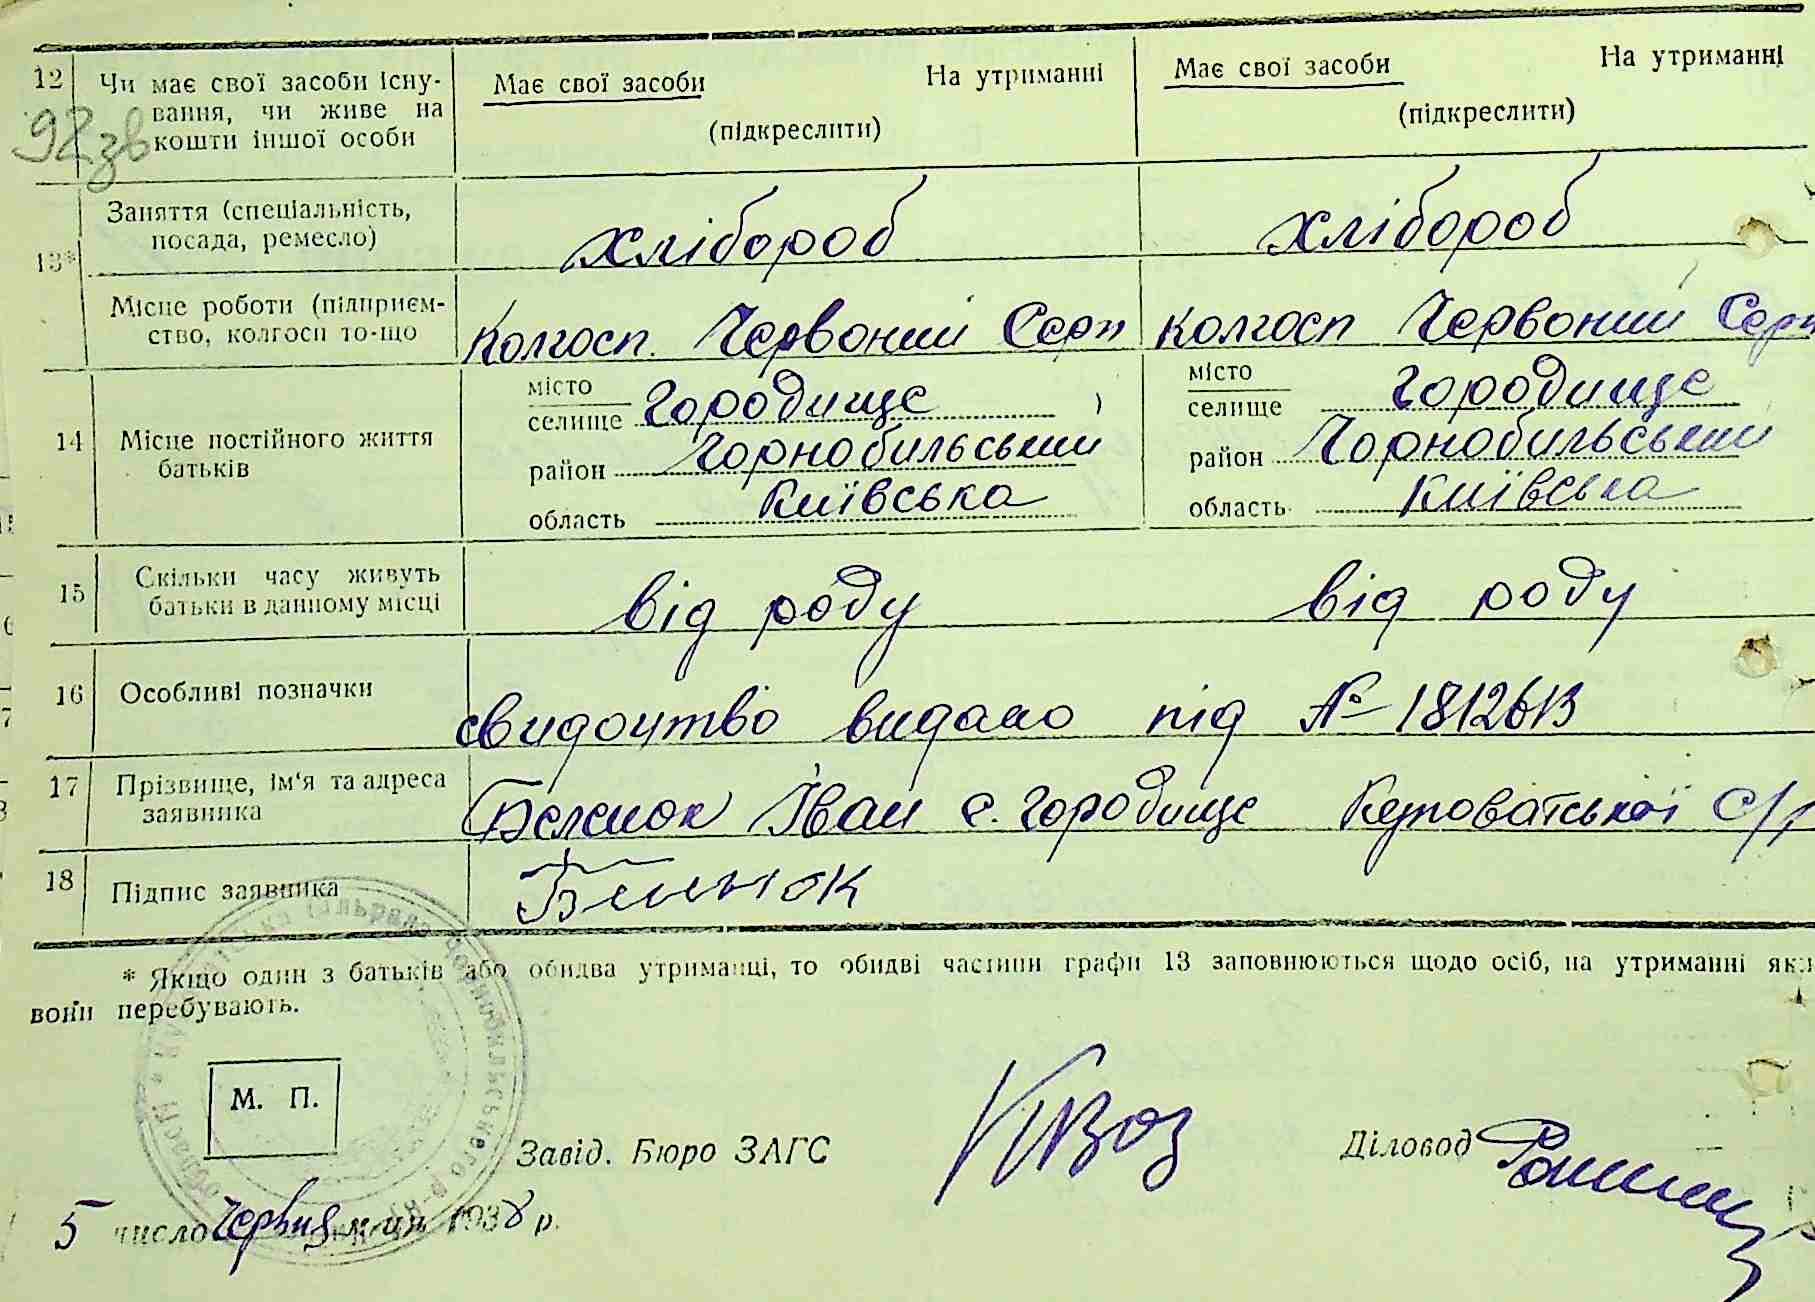 12 Чи має свої засоби існу- Має свої засоби На утриманні Має свої засоби На утриманні
вання, чи живе на (підкреслити) (підкреслити)
92зв кошти іншої особи
13* Заняття (спеціальність, хлібороб хлібороб
посада, ремесло)
Місце роботи (підприєм- Колгосп. Червоний Серп колгосп Червоний Серп
ство, колгосп то-що
14 Місце постійного життя батьків
місто місто
селище Городище селище городище
район Чорнобильський район Чорнобильський
область Київська область Київська
15 Скільки часу живуть від роду від роду
батьки в данному місці
16 Особливі позначки свидоцтво видано під № 1812613
17 Прізвище, ім'я та адреса Іван с. городище Куповатської с/р
заявника
18 Підпис заявника
* Якщо один з батьків або обидва утриманці, то обидві частини графи 13 заповнюються щодо осіб, на утриманні яких
вони перебувають.
М. П.
Завід. Бюро ЗАГС Діловод
5 число червня м-ця 1938 р.